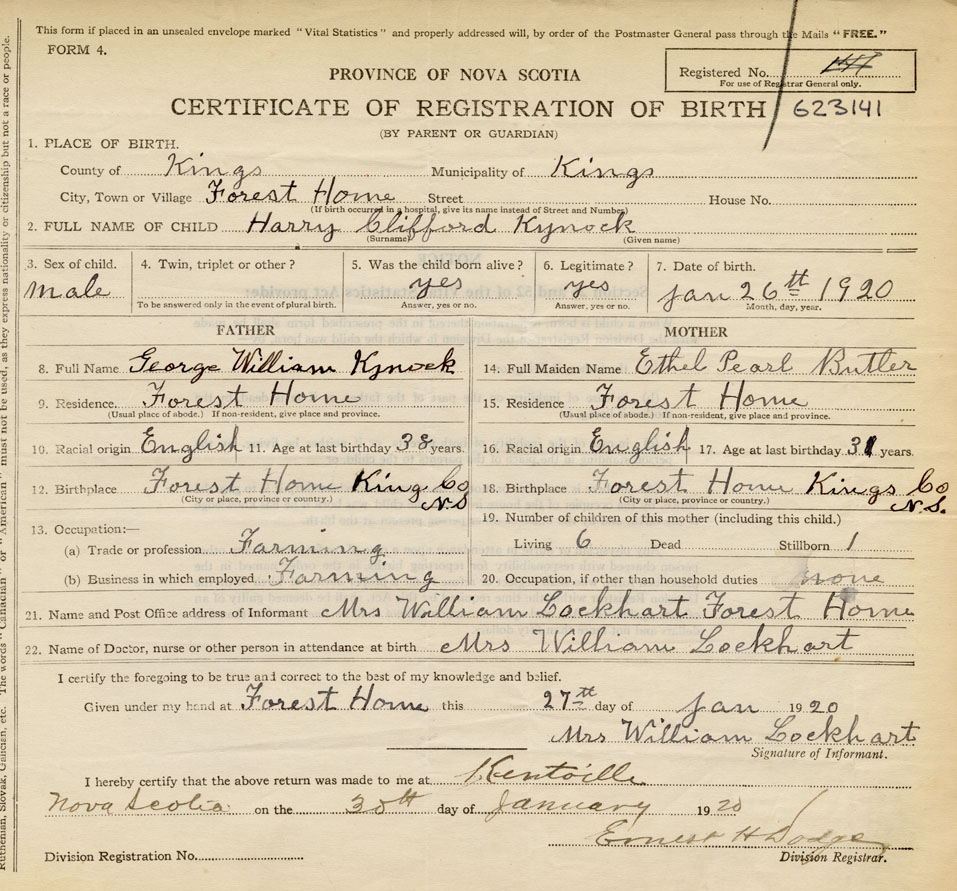 This form if placed in an unsealed envelope marked "Vital Statistics" and properly addressed will, by order of the Postmaster General pass through the Mails "FREE."
FORM 4.
PROVINCE OF NOVA SCOTIA
Registered No.
For use of Registrar General only.
CERTIFICATE OF REGISTRATION OF BIRTH 623141
(BY PARENT OR GUARDIAN)
1. PLACE OF BIRTH.
County of Kings Municipality of Kings
City, Town or Village Forest Home Street House No.
(If birth occurred in a hospital, give its name instead of Street and Number)
2. FULL NAME OF CHILD Harry Clifford Kynock
(Surname) (Given name)
3. Sex of child. 4. Twin, triplet or other? 5. Was the child born alive? 6. Legitimate? 7. Date of birth.
male yes yes Jan 26th 1920
To be answered only in the event of plural birth. Answer, yes or no. Answer, yes or no. Month, day, year.
FATHER MOTHER
8. Full Name George William Kynock 14. Full Maiden Name Ethel Pearl Butler
9. Residence. Forest Home 15. Residence Forest Home
(Usual place of abode.) If non-resident, give place and province. (Usual place of abode.) If non-resident, give place and province.
10. Racial origin English 11. Age at last birthday 38 years. 16. Racial origin English 17. Age at last birthday 31 years.
12. Birthplace Forest Home King Co N.S 18. Birthplace Forest Home Kings Co N.S.
(City or place, province or country.) (City or place, province or country.)
13. Occupation:— 19. Number of children of this mother (including this child.)
(a) Trade or profession Farming Living 6 Dead Stillborn 1
(b) Business in which employed Farming 20. Occupation, if other than household duties none
21. Name and Post Office address of Informant Mrs William Lockhart Forest Home
22. Name of Doctor, nurse or other person in attendance at birth Mrs William Lockhart
I certify the foregoing to be true and correct to the best of my knowledge and belief.
Given under my hand at Forest Home this 27th day of Jan 1920
Mrs William Lockhart
Signature of Informant.
I hereby certify that the above return was made to me at Kentville
Nova Scotia on the 30th day of January 1920
Ernest H Dodge
Division Registration No. Division Registrar.
Ruthenian, Slovak, Galician, etc. The words "Canadian" or "American" must not be used, as they express nationality or citizenship but not a race or people.